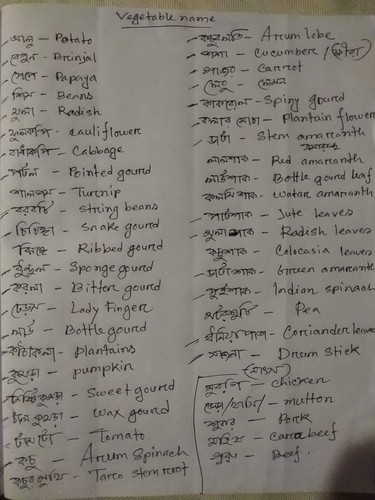 Vegetable name
আলু – Potato
বেগুন – Brinjal
পেপে – Papaya
শিম – Beans
মুলা – Radish
ফুলকপি – Cauliflower
বাঁধাকপি – Cabbage
পটল – Pointed gourd
শালগম – Turnip
বরবটি – String beans
চিচিঙ্গা – Snake gourd
ঝিঙ্গে – Ribbed gourd
ধুঁন্দুল – Sponge gourd
করলা – Bitter gourd
ঢেড়স – Lady Finger
লাউ – Bottle gourd
কাঁচাকলা – Plantains
কুমড়া – pumpkin
মিষ্টিকুমড়া – Sweet gourd
চাল কুমড়া – Wax gourd
টমেটো – Tomato
কচু – Arum Spinach
কচুর মুখি – Tarco stem root
কচুর লতি – Arum lobe
শশা – Cucumbere /
গাজর – Carrot
লেবু – লেমন
কাকরোল – Spiny gourd
কলার মোচা – Plantain flower
ডাটা – Stem amaranth
লালশাক – Red amaranth
লাউশাক – Bottle gourd leaf
কলমি শাক – Watar amaranth
পাটশাক – Jute leaves
মুলাশাক – Radish leaves
কচুশাক – Colocasia leaves
ডাটাশাক – Green amarante
পুঁইশাক – Indian spinach
মটরশুটি – Pea
ধনিয়া পাতা – Coriander leaves
সাজনা – Drum stick
(মাংস)
মুরগি – chicken
/খাসি/ – mutton
শুকর – Pork
মহিষ – Carabeef
গরু – Beef.